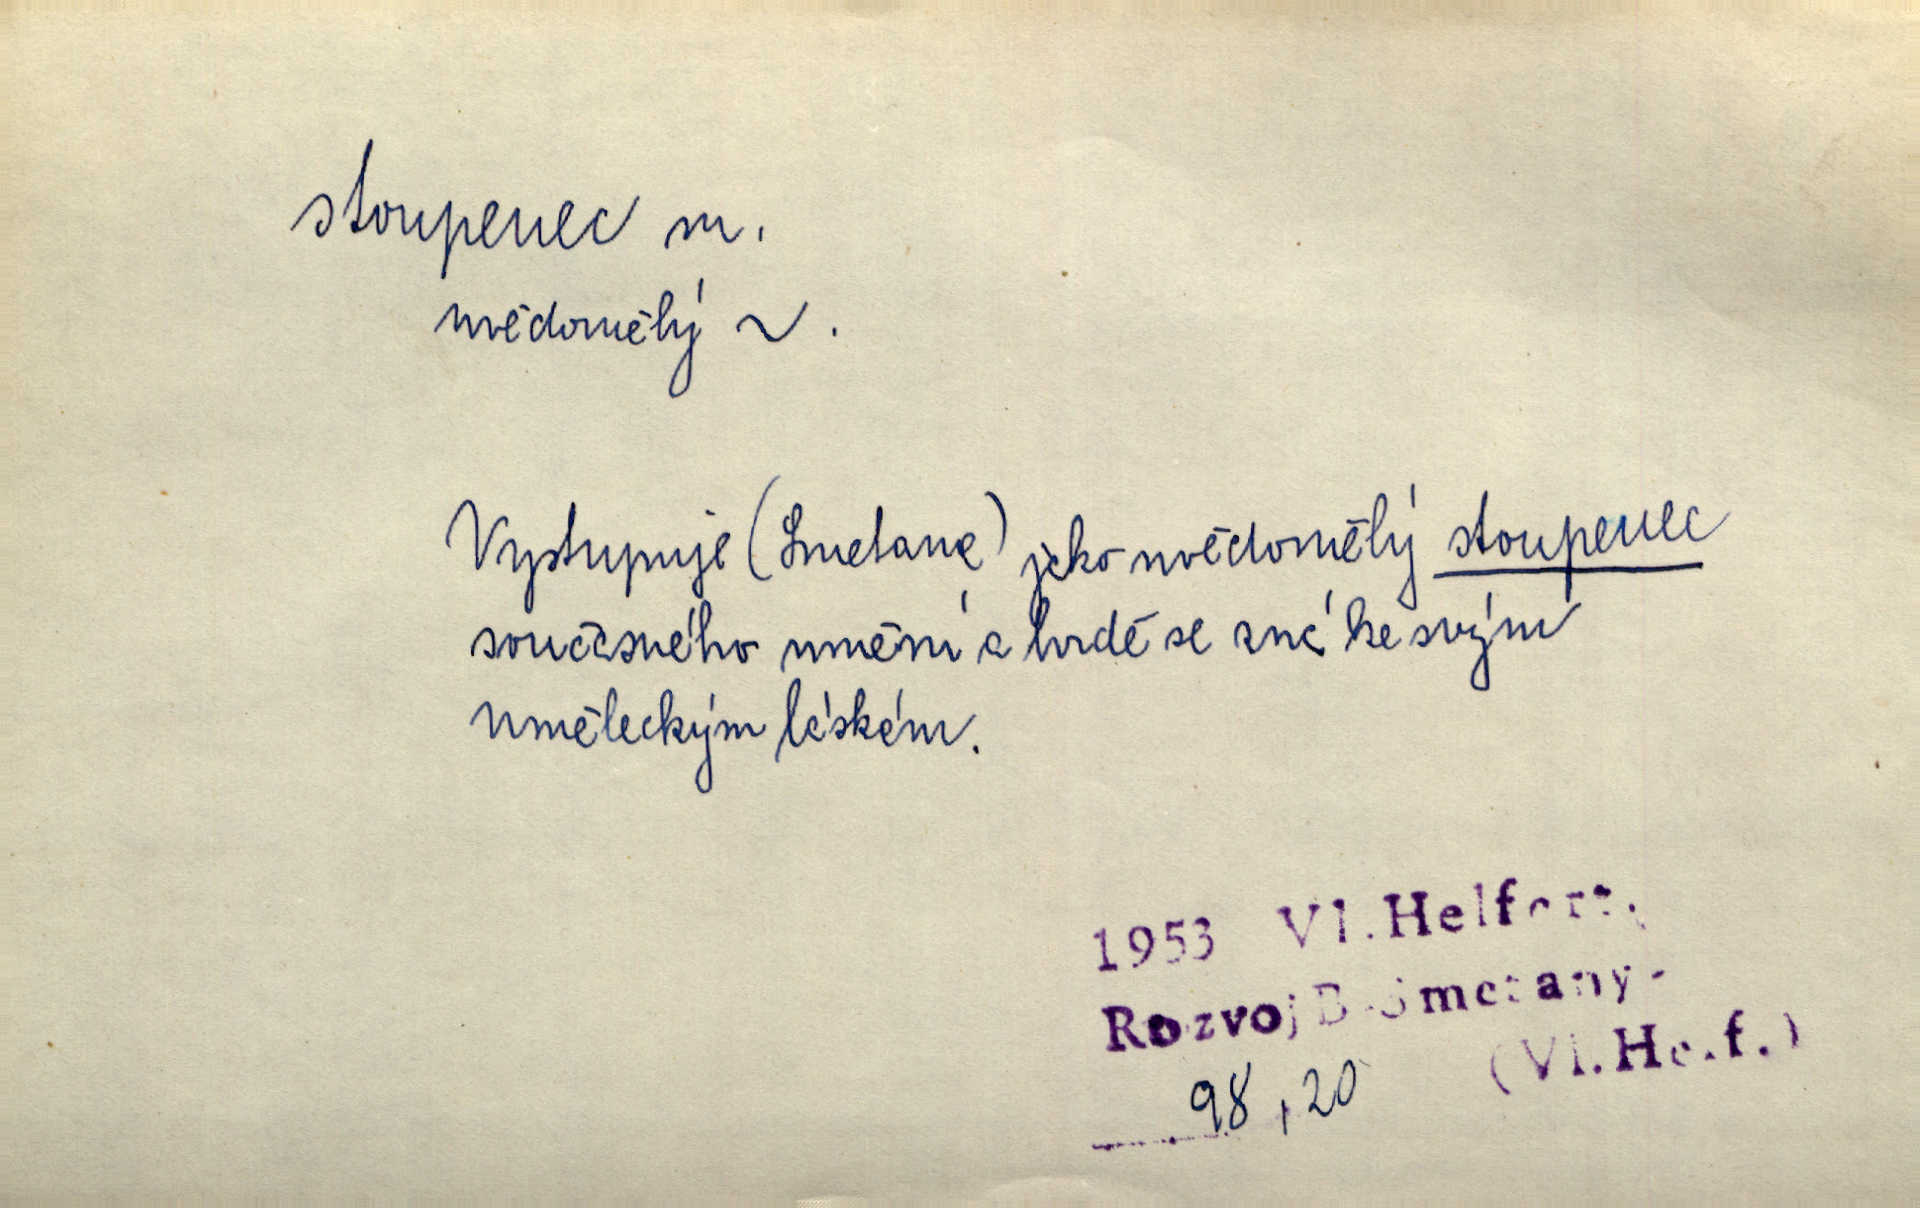 stoupenec m.
uvědomělý ~.
Vystupuje (Smetana) jako uvědomělý stoupenec
současného umění a hrdě se zná ke svým
uměleckým láskám.
1953 Vl. Helfert,
Rozvoj B. Smetany.
98,20 (Vl. Helf.)